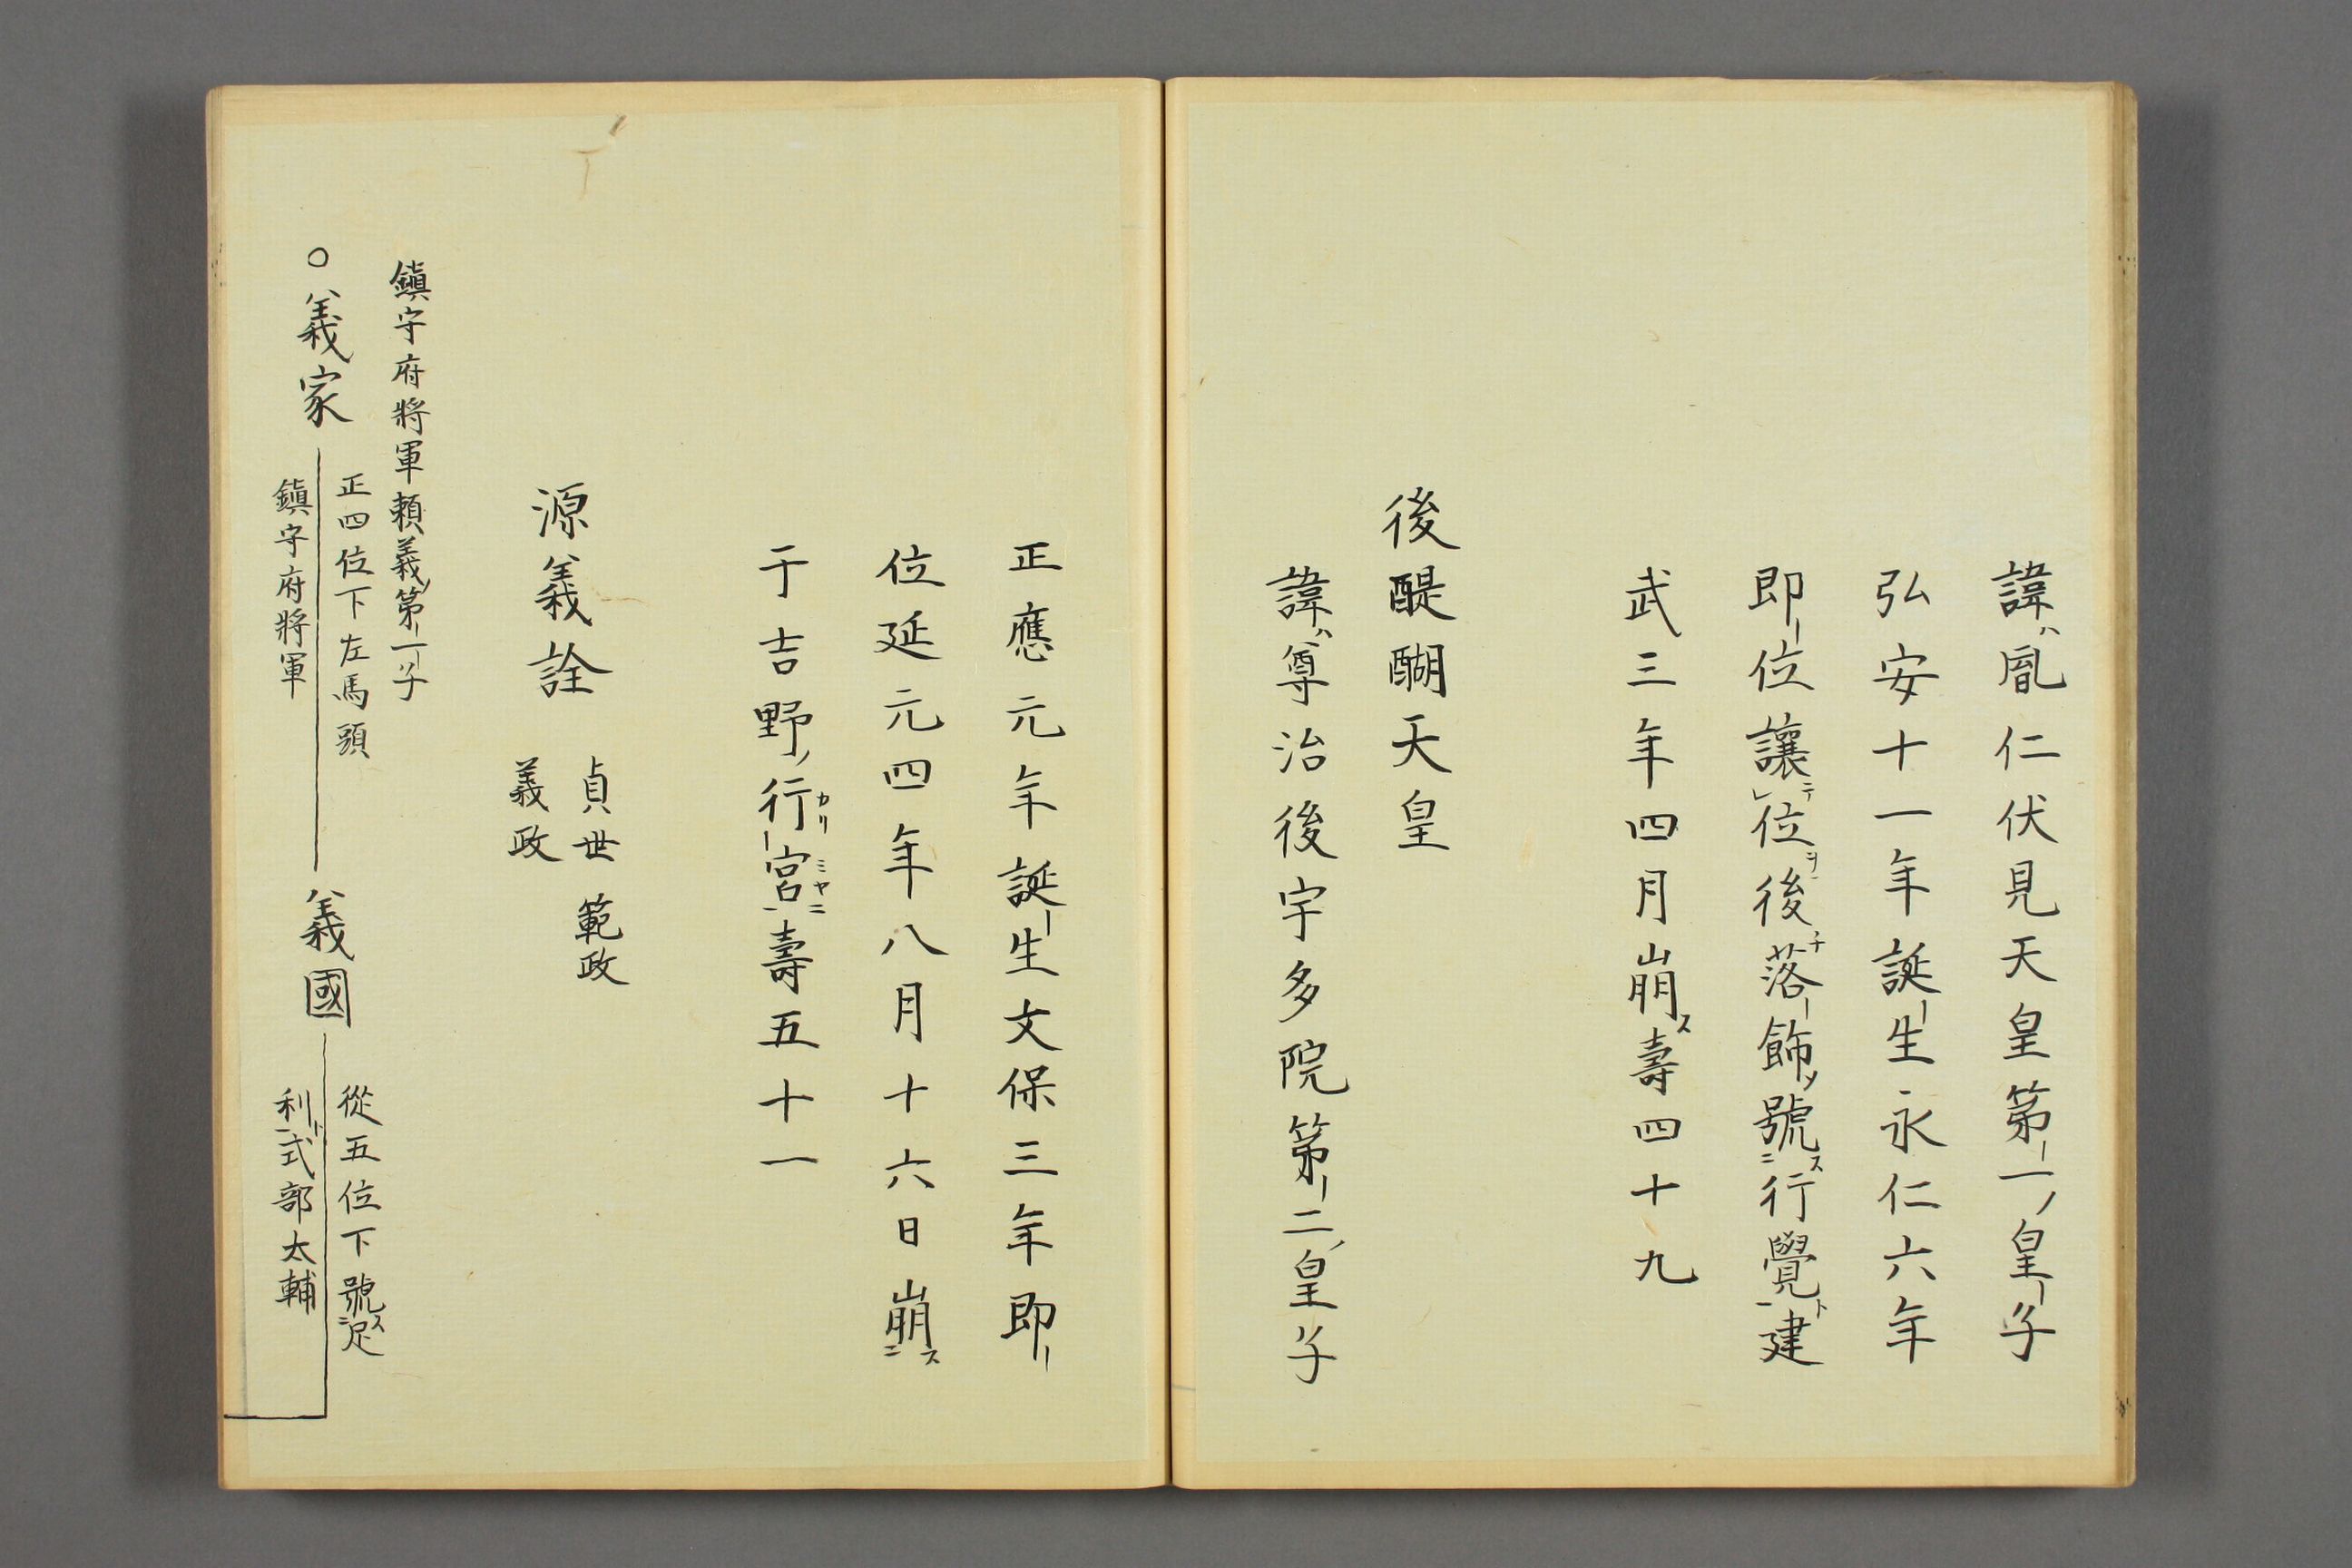 諱ハ胤仁伏見天皇第一ノ皇子
弘安十一年誕生永仁六年
即位讓テ位ヲ後チ落飾ノ號ス行覺ト建
武三年四月崩ス壽四十九
後醍醐天皇
諱ハ尊治後宇多院第二ノ皇子
正應元年誕生文保三年即
位延元四年八月十六日崩ス
于吉野ノ行カリ宮ミヤニ壽五十一
源義詮
貞世 範政
義政
鎮守府將軍賴義ノ第一子
○義家
正四位下左馬頭
鎮守府將軍
義國
從五位下號ス足
利ト式部太輔